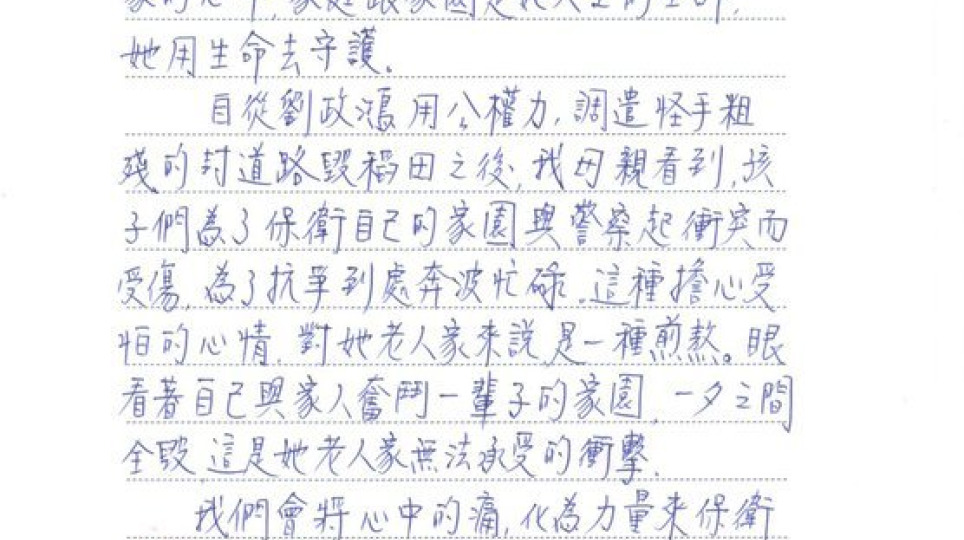 她用生命去守護。
自從劉政鴻用公權力,調遣怪手粗
殘的封道路毀稻田之後,我母親看到,孩
子們為了保衛自己的家園與警察起衝突而
受傷,為了抗爭到處奔波忙碌.這種擔心受
怕的心情,對她老人家來說是一種煎熬。眼
看著自己與家人奮鬥一輩子的家園,一夕之間
全毀,這是她老人家無法承受的衝擊.
我們會將心中的痛,化為力量來保衛